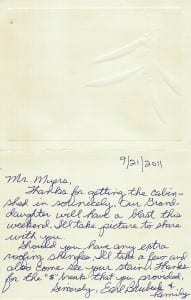 9/21/2011
Mr. Myers,
Thanks for getting the cabin-
shed in so nicely. Our Grand-
daughter will have a blast this
weekend. I'll take picture to share
with you.
Should you have any extra
roofing shingles, I'll take a few and
also come see your stain. Thanks
for the "$" break that you provided.
Sincerely, Earl &
Family